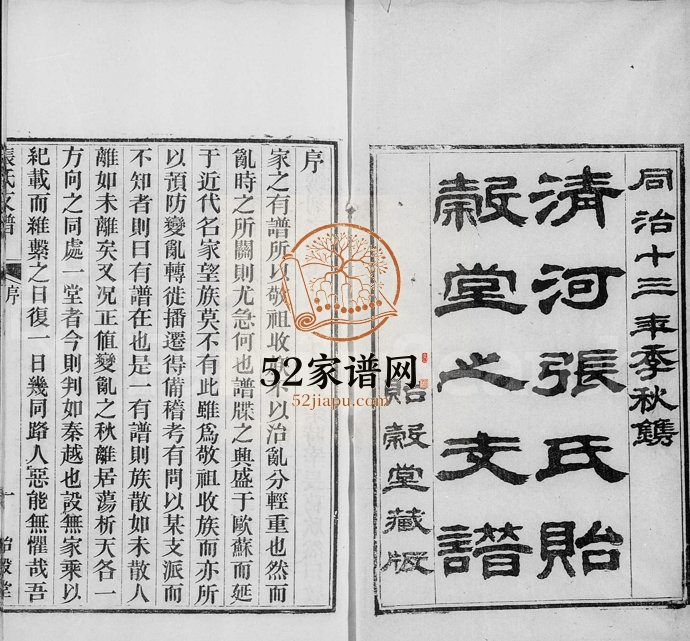 同治十三年季秋鐫
清河張氏貽
穀堂之支譜
貽穀堂藏版
序
家之有譜所以敬祖收 以治亂分輕重也然而
亂時之所關則尤急何也譜牒之興盛于歐蘇而延
于近代名家望族莫不有此雖爲敬祖收族而亦所
以預防變亂轉徙播遷得備稽考有問以某支派而
不知者則曰有譜在也是一有譜則族散如未散人
離如未離矣又况正值變亂之秋離居蕩析天各一
方向之同處一堂者今則判如秦越也設無家乘以
紀載而維繫之日復一日幾同路人惡能無懼哉吾
張氏支譜 序 一 貽穀堂
52家谱网
52jiapu.com